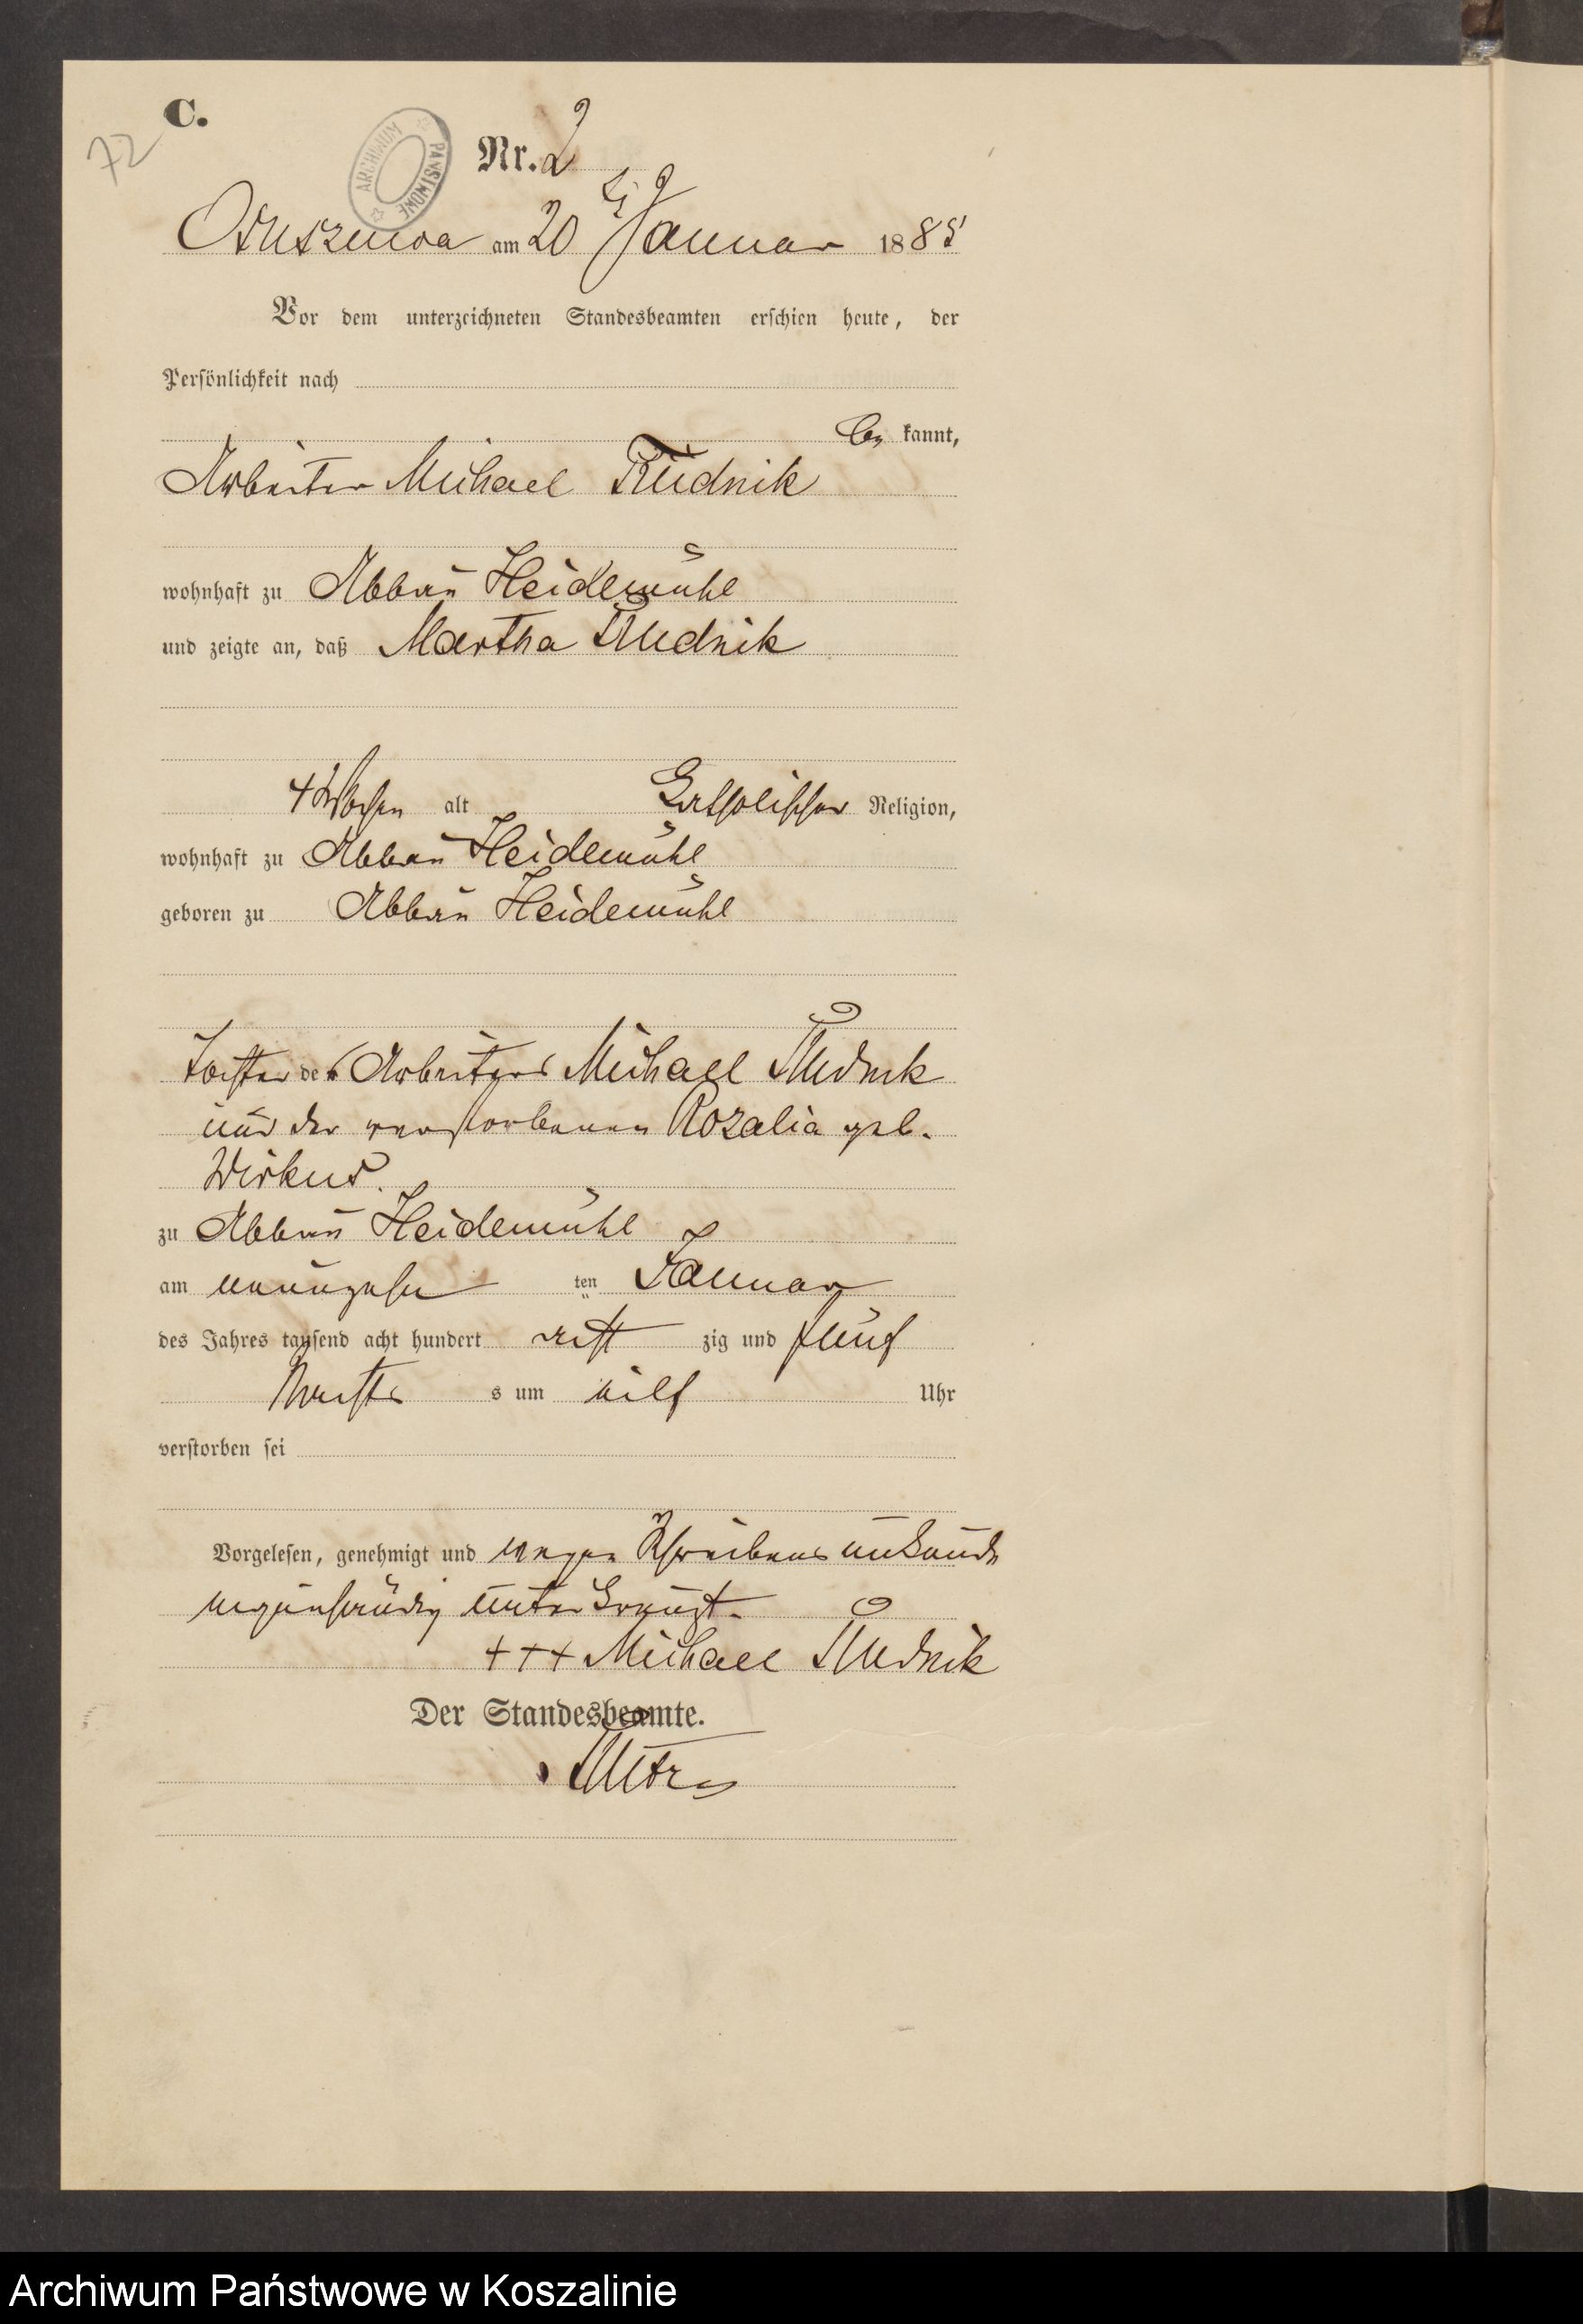 C.
72
ARCHIWUM PAŃSTWOWE
Nr. 2
Osuszniza am 20 ten Januar 1885
Vor dem unterzeichneten Standesbeamten erschien heute, der
Persönlichkeit nach
be kannt,
Arbeiter Michael Rudnik
wohnhaft zu Abbau Heidemühl
und zeigte an, daß Martha Rudnik
4 Wochen alt katholischer Religion,
wohnhaft zu Abbau Heidemühl
geboren zu Abbau Heidemühl
Tochter des Arbeiters Michael Rudnik
und der verstorbenen Rozalia geb.
Wirkus.
zu Abbau Heidemühl
am neunzehn ten Januar
des Jahres tausend acht hundert acht zig und fünf
Nachts um eilf Uhr
verstorben sei
Vorgelesen, genehmigt und wegen Schreibens unkunde
eigenhändig unterkreuzt.
+++ Michael Rudnik
Der Standesbeamte.
Archiwum Państwowe w Koszalinie